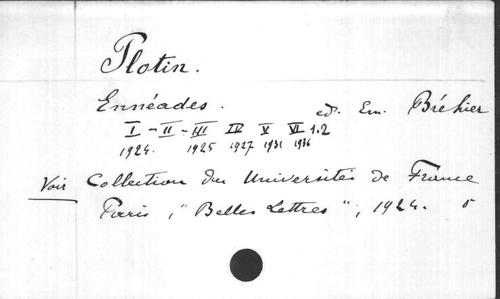 Plotin.
Ennéades. ed. Em. Bréhier
I - II - III IV V VI 1.2
1924. 1925 1927 1931 1936
Voir Collection des Universités de France
Paris, "Belles Lettres", 1924.